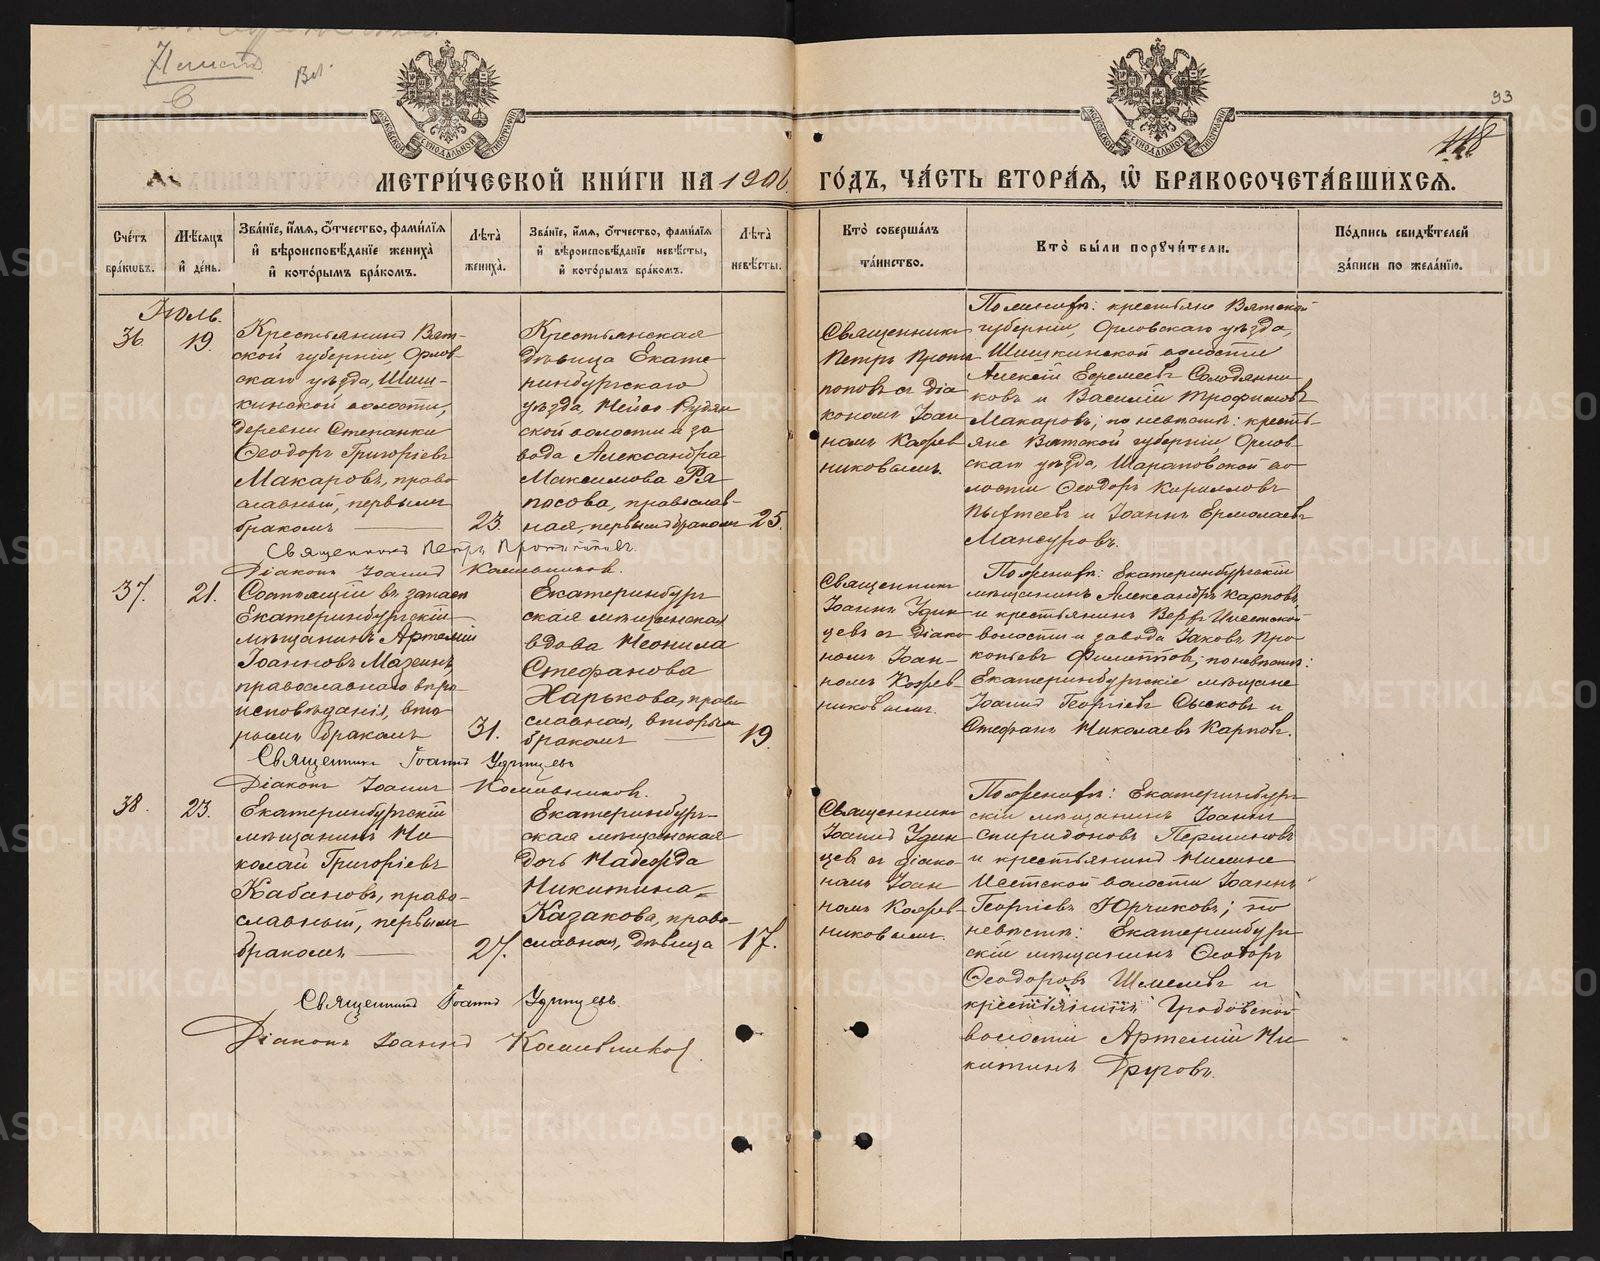 93
118
МЕТРИ́ЧЕСКОЙ КНИ́ГИ НА 1906 ГО́ДЪ, ЧА́СТЬ ВТОРА́Я, Ѡ҆ БРАКОСОЧЕТА́ВШИХСЯ.
Сче́тъ бра́кѡвъ.
Мѣ́сяцъ и҆ де́нь.
Зва́нїе, и҆́мѧ, ѻ҆́тчество, фами́лїѧ
и҆ вѣроисповѣ́данїе жениха̀
и҆ кото́рымъ бра́комъ.
Лѣта̀ жениха̀.
Зва́нїе, и҆́мѧ, ѻ҆́тчество, фами́лїѧ
и҆ вѣроисповѣ́данїе невѣ́сты,
и҆ кото́рымъ бра́комъ.
Лѣта̀ невѣ́сты.
Кто̀ соверша́лъ
та́инство.
Кто̀ бы́ли порꙋчи́тели.
По́дпись свидѣ́телей
за́писи по жела́нїю.
Іюль.
36
19.
Крестьянинъ Вят-
ской губерніи, Орлов-
скаго уѣзда, Шиш-
кинской волости,
деревни Степанки
Ѳеодоръ Григоріевъ
Макаровъ, право
славный, первымъ
бракомъ
23.
Крестьянская
дѣвица Екате
ринбургскаго
уѣзда, Нейво Рудян
ской волости и за
вода Александра
Максимова Ря
посова, православ-
ная, первымъ бракомъ
25.
Священникъ
Петръ Прото
поповъ съ діа
кономъ Іоан
номъ Кожев
никовымъ.
По женихѣ: крестьяне Вятской
губерніи, Орловскаго уѣзда,
Шишкинской волости
Алексій Еремеевъ Солодянни
ковъ и Василій Трофимовъ
Макаровъ; по невѣстѣ: кресть-
яне Вятской губерніи Орлов-
скаго уѣзда, Шараповской во
лости Ѳеодоръ Кирилловъ
Пыхтеевъ и Іоаннъ Ермолаевъ
Мансуровъ.
Священникъ Петръ Протопоповъ.
Діаконъ Іоаннъ Кожевниковъ.
37.
21.
Состоящій въ запасѣ
Екатеринбургскій
мѣщанинъ Артемій
Іоанновъ
православнаго вѣро-
исповѣданія, вто
рымъ бракомъ
31.
Екатеринбург
ская мѣщанская
вдова Неонила
Стефанова
Харькова, право
славная, вторымъ
бракомъ
19.
Священникъ
Іоаннъ Удин
цевъ съ діако
номъ Іоан-
номъ Кожев-
никовымъ.
По женихѣ: Екатеринбургскій
мѣщанинъ Александръ Карповъ
и крестьянинъ Верхъ Исетской
волости и завода Іаковъ Про
копьевъ; по невѣстѣ:
Екатеринбургскіе мѣщане
Іоаннъ Георгіевъ Сысковъ и
Стефанъ Николаевъ Карповъ.
Священникъ Іоаннъ Удинцевъ
Діаконъ Іоаннъ Кожевниковъ.
38.
23.
Екатеринбургскій
мѣщанинъ Ни
колай Григоріевъ
Кабановъ, право-
славный, первымъ
бракомъ
27.
Екатеринбург-
ская мѣщанская
дочь Надежда
Никитина
Казакова, право-
славная, дѣвица
17.
Священникъ
Іоаннъ Удин
цевъ съ діако-
номъ Іоан
номъ Кожев-
никовымъ.
По женихѣ: Екатеринбург
скій мѣщанинъ Іоаннъ
Спиридоновъ Першиновъ
и крестьянинъ Нижне
Исетской волости Іоаннъ
Георгіевъ Юрчиковъ; по
невѣстѣ: Екатеринбург
скій мѣщанинъ Ѳеодоръ
Ѳеодоровъ Шмелевъ и
крестьянинъ Гробовской
волости Артемій Ни-
китинъ Друговъ.
Священникъ Іоаннъ Удинцевъ.
Діаконъ Іоаннъ Кожевниковъ.
METRIKI.GASO-URAL.RU